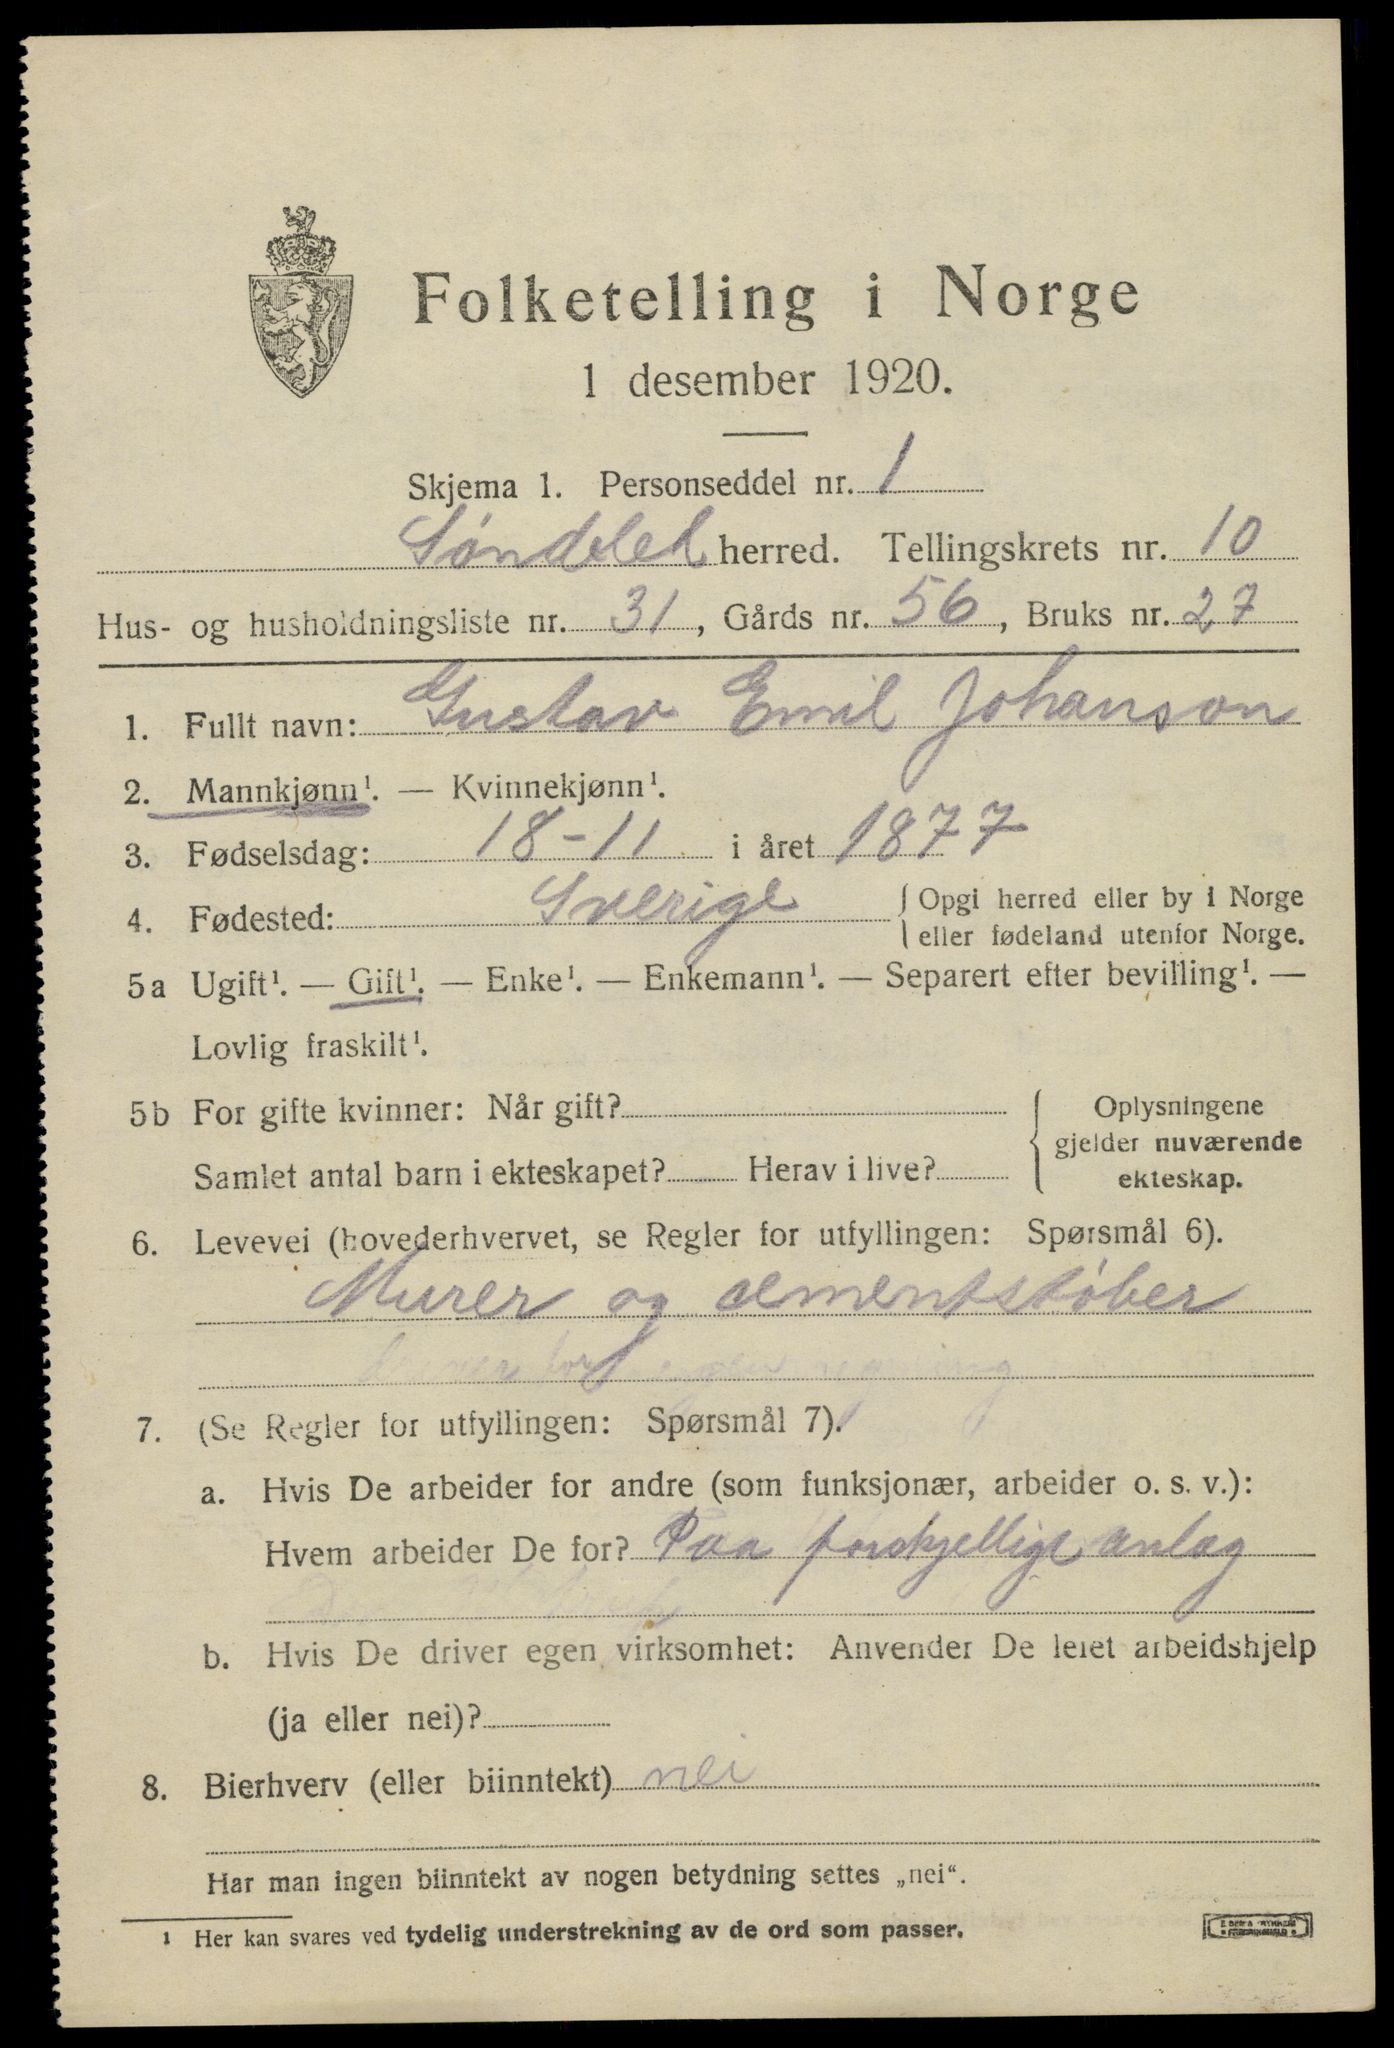 Folketelling i Norge
1 desember 1920.
Skjema 1. Personseddel nr. 1
Søndeled herred. Tellingskrets nr. 10
Hus- og husholdningsliste nr. 31, Gårds nr. 56, Bruks nr. 27
1. Fullt navn: Gustav Emil Johanson
2. Mannkjønn¹. — Kvinnekjønn¹.
3. Fødselsdag: 18-11 i året 1877
4. Fødested: Sverige { Opgi herred eller by i Norge
eller fødeland utenfor Norge.
5a Ugift¹. — Gift¹. — Enke¹. — Enkemann¹. — Separert efter bevilling¹. —
Lovlig fraskilt¹.
5b For gifte kvinner: Når gift? { Oplysningene
gjelder nuværende
Samlet antal barn i ekteskapet? Herav i live? ekteskap.
6. Levevei (hovederhvervet, se Regler for utfyllingen: Spørsmål 6).
Murer og cementstøber
for egen regning
7. (Se Regler for utfyllingen: Spørsmål 7).
a. Hvis De arbeider for andre (som funksjonær, arbeider o. s. v.):
Hvem arbeider De for? Paa forskjellige anlag
b. Hvis De driver egen virksomhet: Anvender De leiet arbeidshjelp
(ja eller nei)?
8. Bierhverv (eller biinntekt) nei
Har man ingen biinntekt av nogen betydning settes „nei“.
¹ Her kan svares ved tydelig understrekning av de ord som passer.